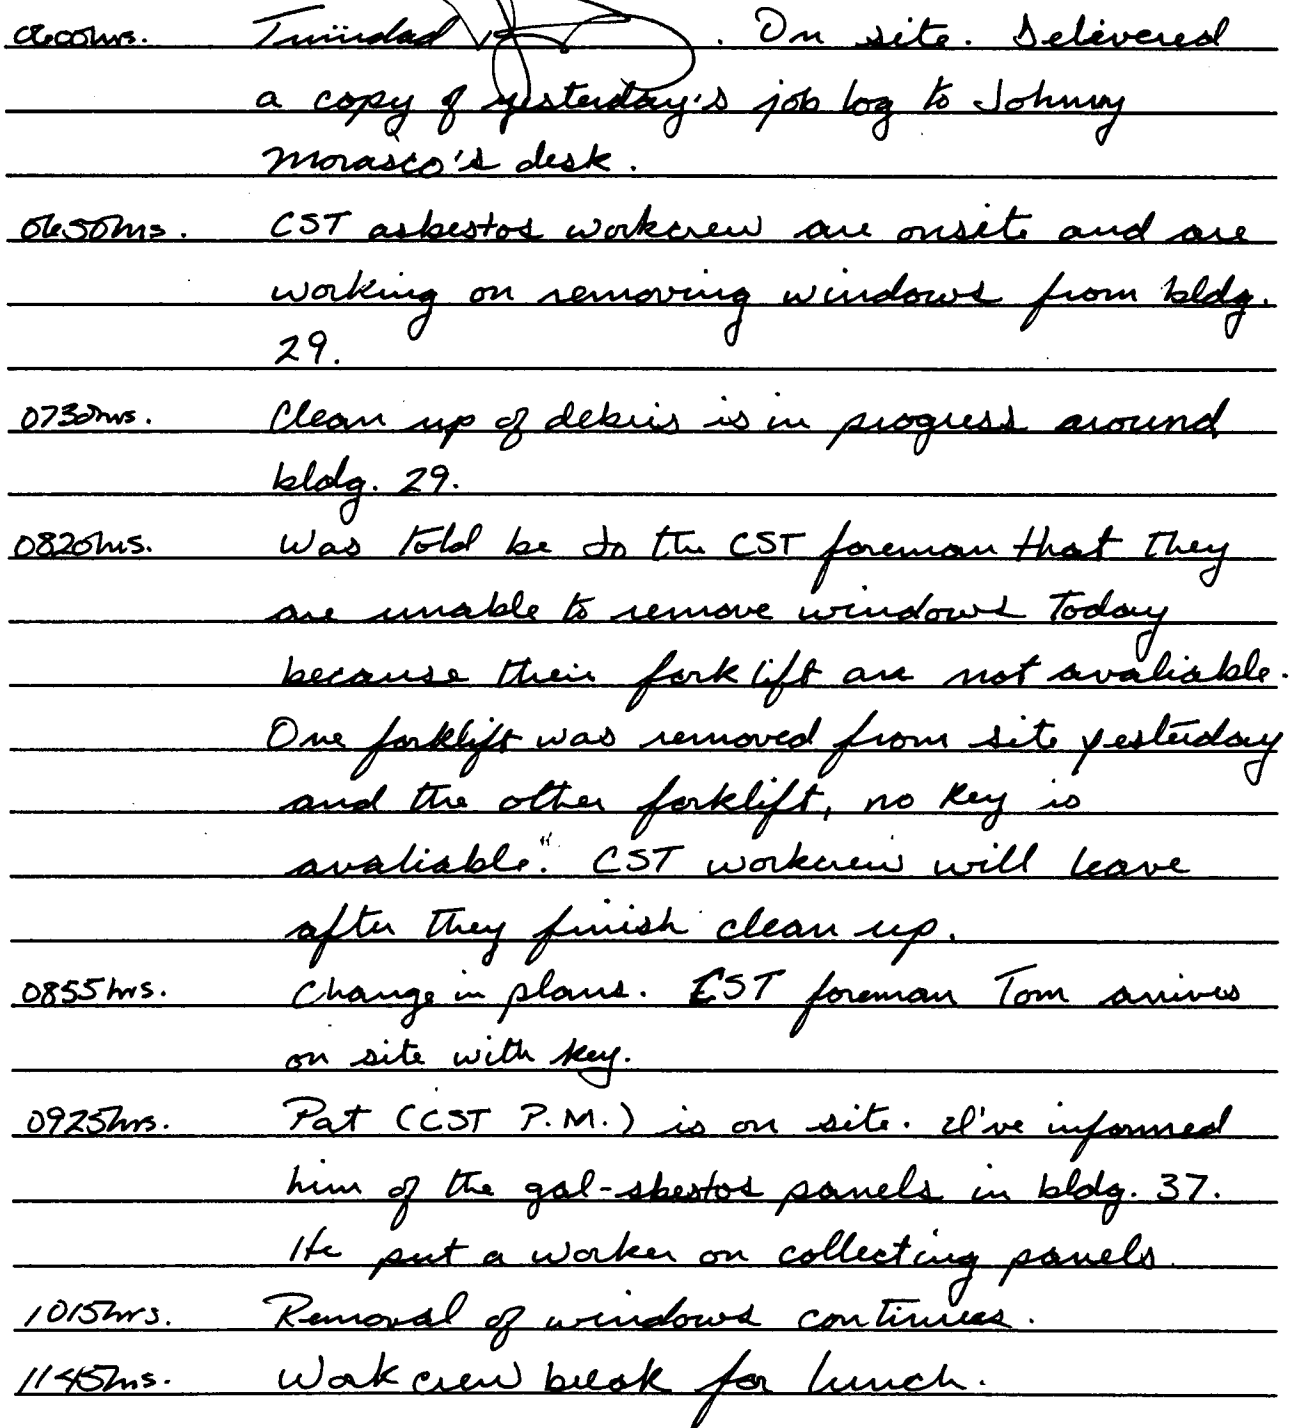 0600hrs. Trinidad . On site. Delivered
a copy of yesterday's job log to Johnny
Morasco's desk.
0650hrs. CST asbestos workcrew are onsite and are
working on removing windows from bldg.
29.
0730hrs. Clean up of debris is in progress around
bldg. 29.
0820hrs. Was told be to the CST foreman that they
are unable to remove windows today
because their fork lift are not avaliable.
One forklift was removed from site yesterday
and the other forklift, no key is
avaliable." CST workcrew will leave
after they finish clean up.
0855hrs. Change in plans. CST foreman Tom arrives
on site with key.
0925hrs. Pat (CST P.M.) is on site. I've informed
him of the gal-sbestos panels in bldg. 37.
He put a worker on collecting panels
1015hrs. Removal of windows continues.
1145hrs. Work crew break for lunch.